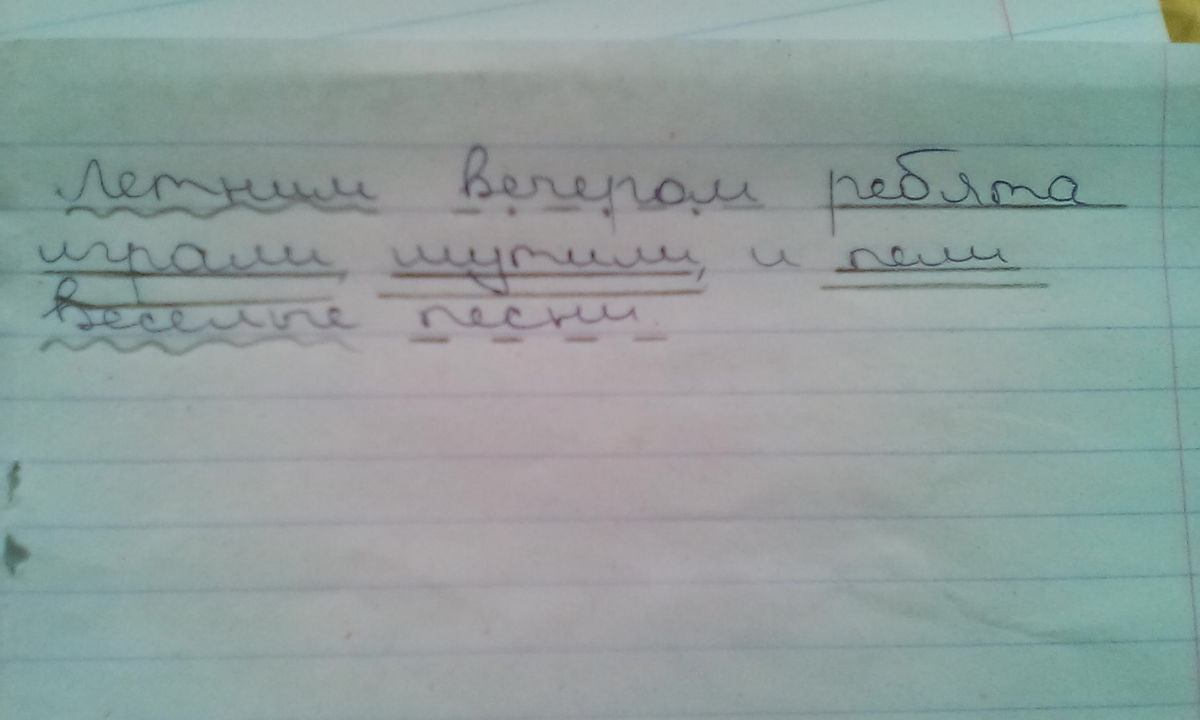 Летним вечером ребята
играли, шутили, и пели
веселые песни.